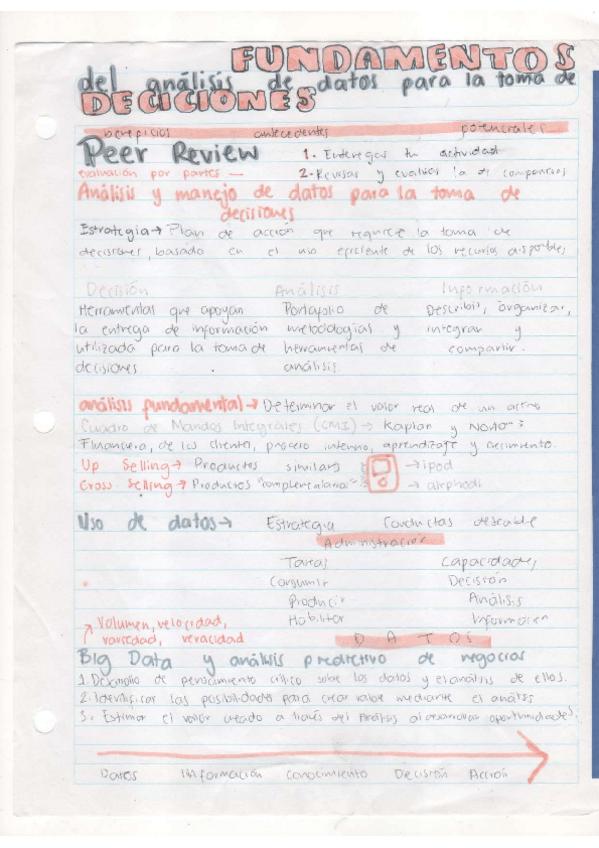 FUNDAMENTOS
del análisis de datos para la toma de
DECICIONES
beneficios antecedentes potenciales
Peer Review 1. Entregas tu actividad
evaluación por partes — 2. Revisas y evalúas la de compañeros
Análisis y manejo de datos para la toma de
decisiones
Estrategia → Plan de acción que requiere la toma de
decisiones, basado en el uso eficiente de los recursos disponibles
Decisión Análisis Información
Herramientas que apoyan Portafolio de Describir, organizar,
la entrega de información metodologías y integrar y
utilizada para la toma de herramientas de compartir.
decisiones análisis.
análisis fundamental → Determinar el valor real de un activo
Cuadro de Mandos Integrales (CMI) → Kaplan y Norton
Financiera, de los clientes, proceso interno, aprendizaje y crecimiento.
Up Selling → Productos similares → ipod
Cross Selling → Productos "complementarios" → airphods
Uso de datos → Estrategia Conductas deseable
Administración
Tareas Capacidades
Consumir Decisión
Producir Análisis
Habilitar Información
Volumen, velocidad,
variedad, veracidad DATOS
Big Data y análisis predictivo de negocios
1. Desarrollo de pensamiento crítico sobre los datos y el análisis de ellos.
2. Identificar las posibilidades para crear valor mediante el análisis
3. Estimar el valor creado a través del análisis al desarrollar oportunidades.
Datos Información Conocimiento Decisión Acción